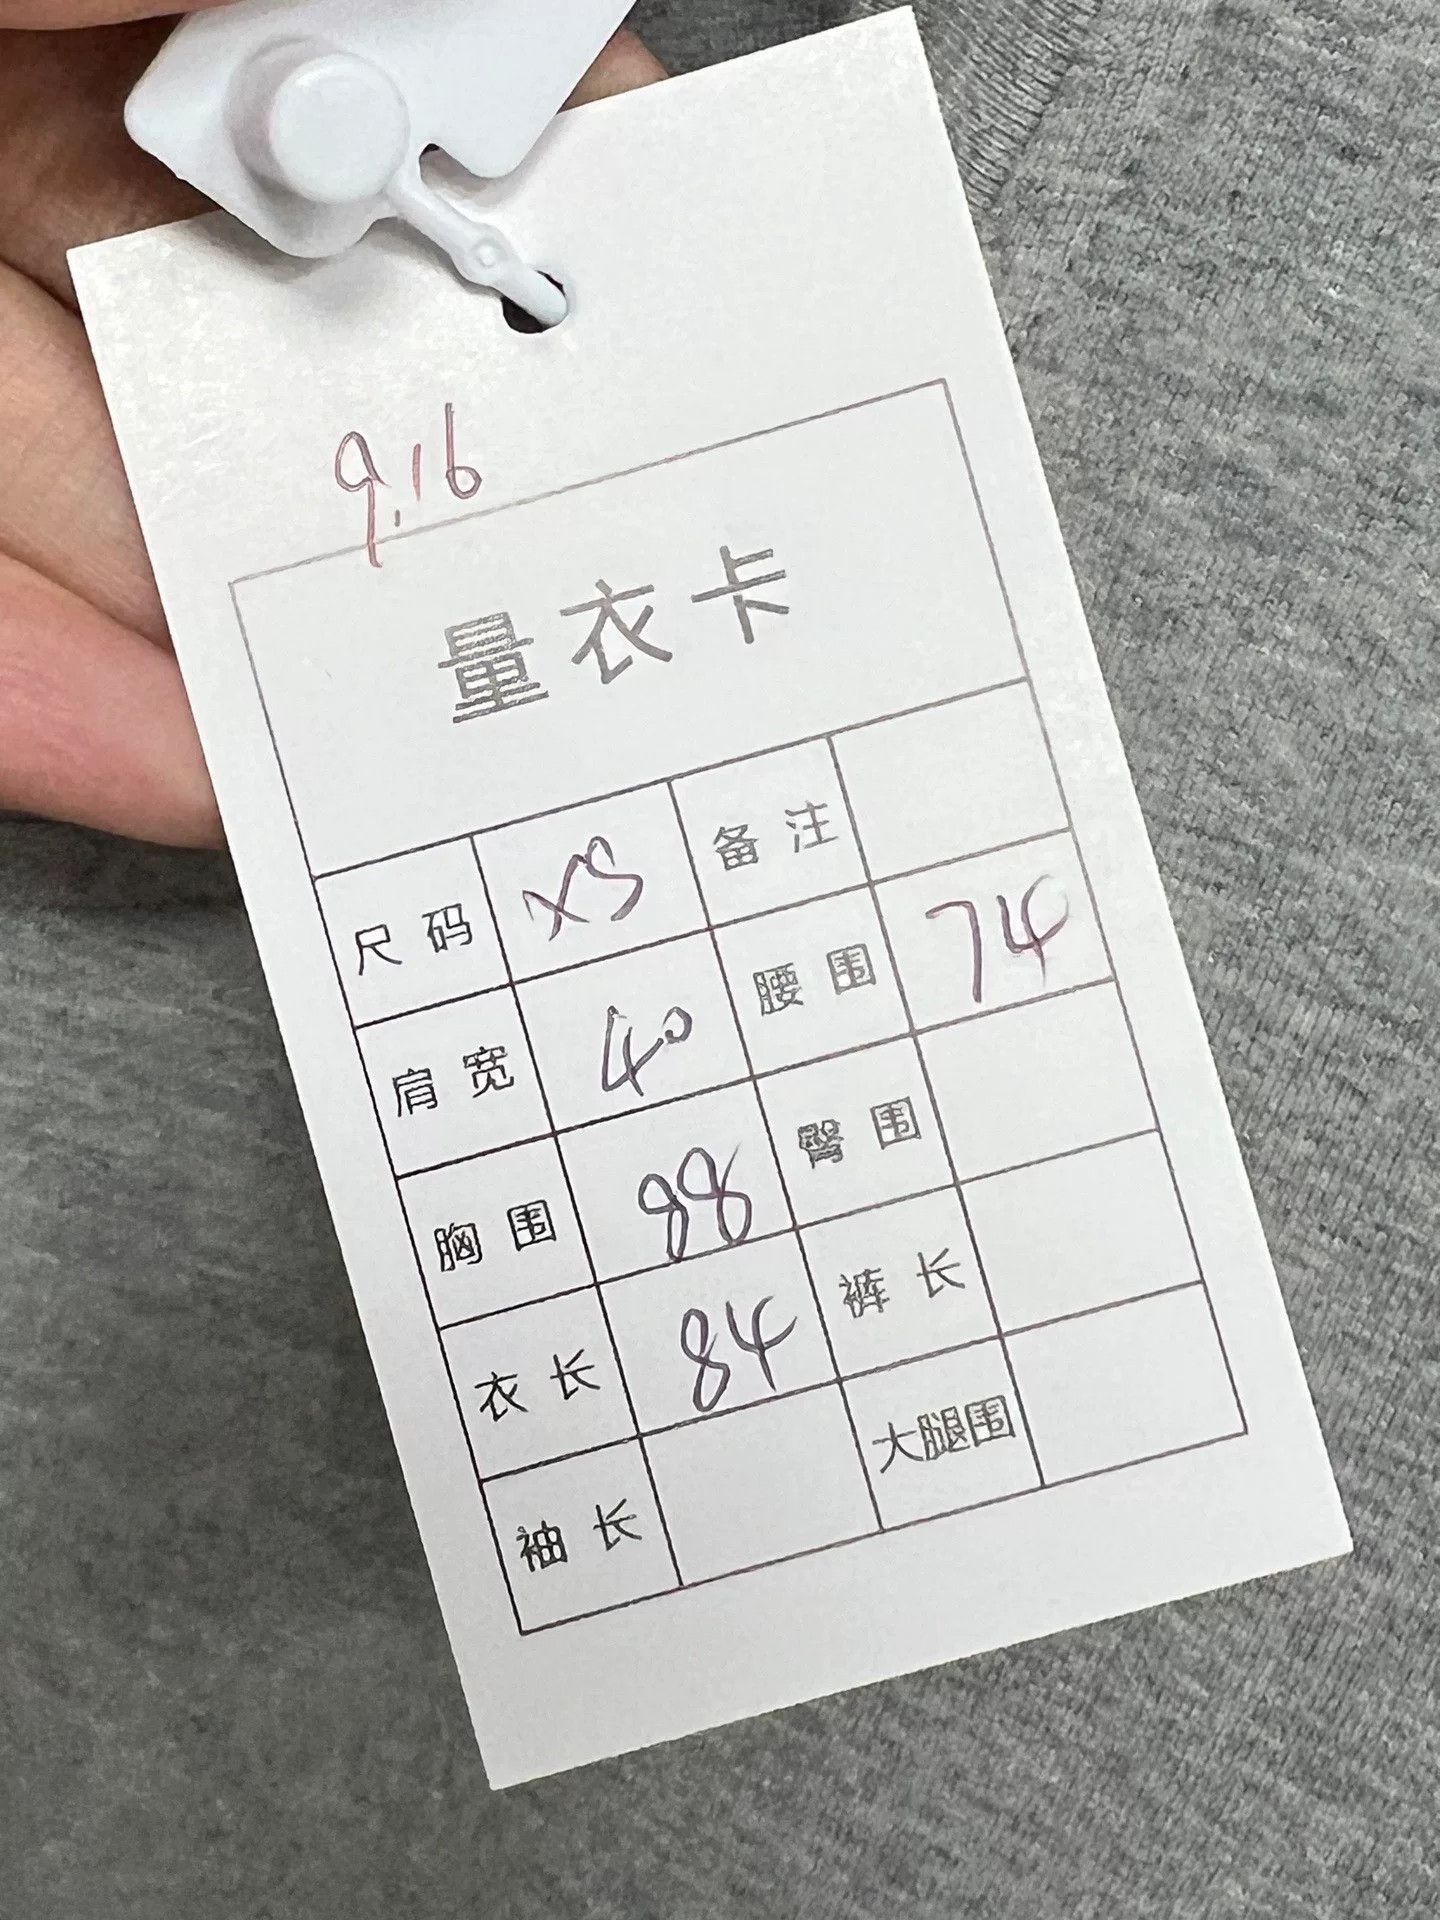 9.16
量衣卡
尺码 XS 备注
肩宽 40 腰围 74
胸围 88 臀围
衣长 84 裤长
袖长 大腿围